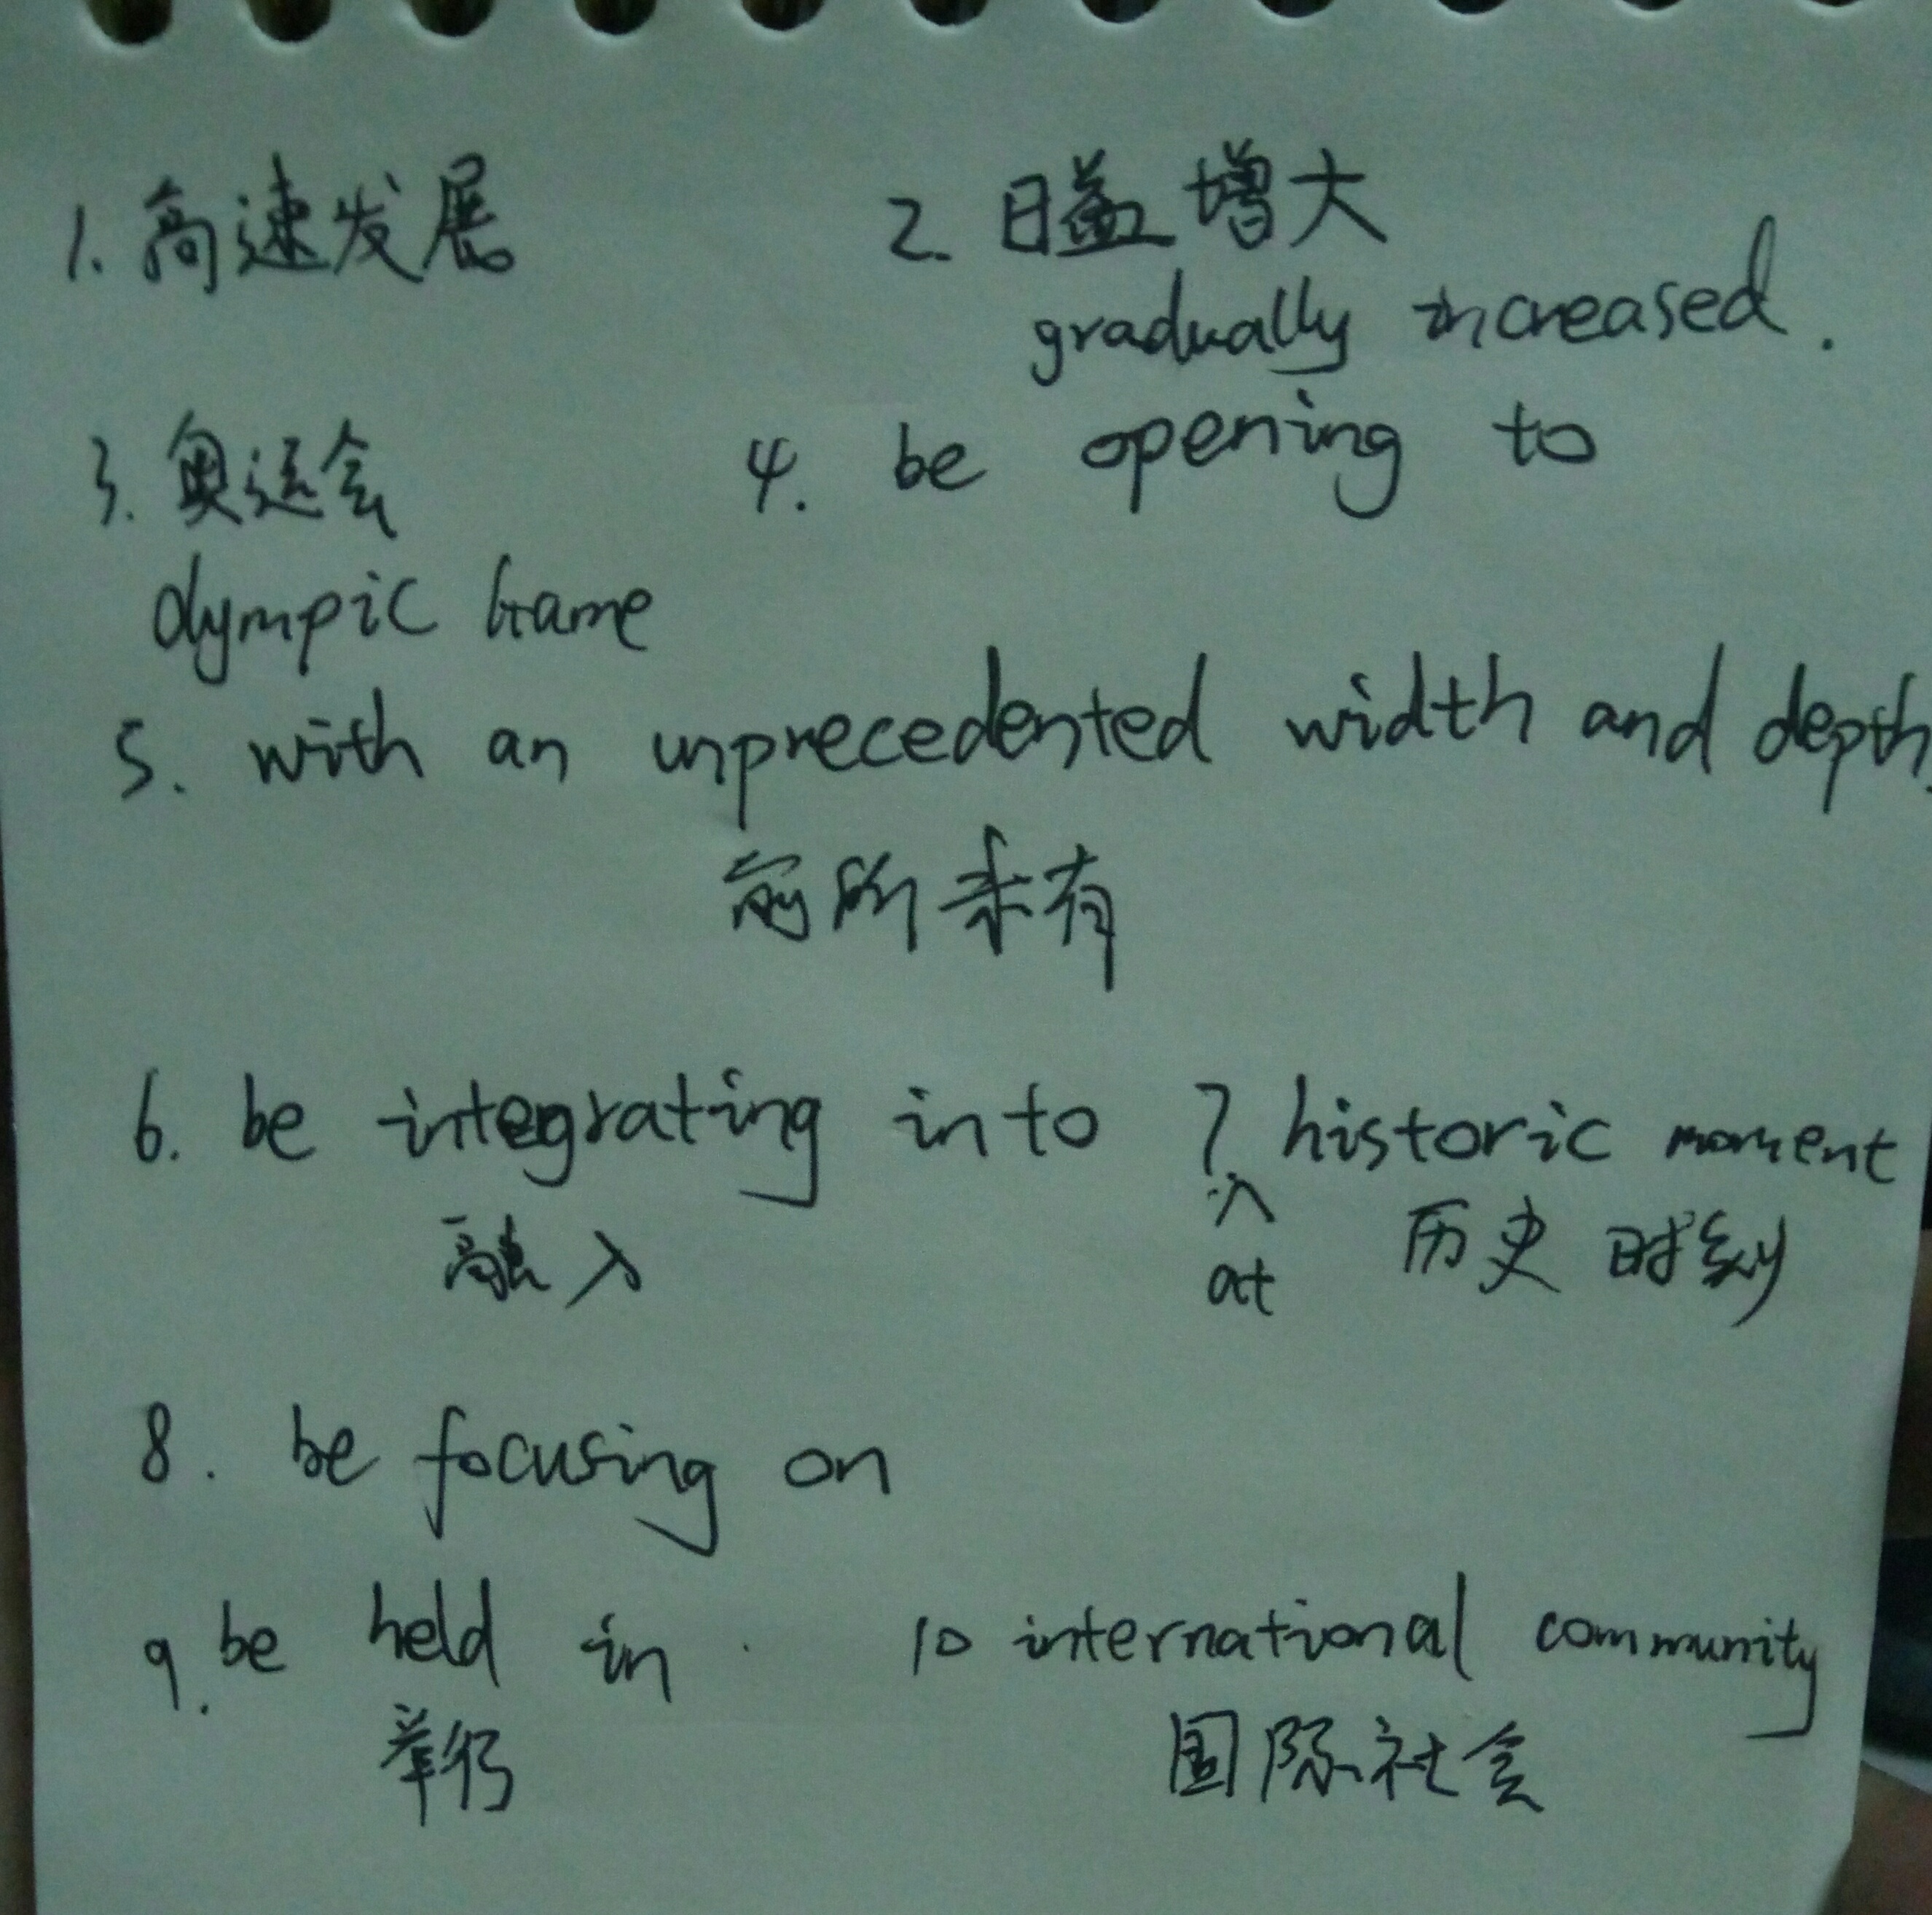 1. 高速发展
2. 日益增大
gradually increased.
3. 奥运会
4. be opening to
Olympic Game
5. with an unprecedented width and depth.
前所未有
6. be integrating into
7. historic moment
融入
at
历史时刻
8. be focusing on
9. be held in
10 international community
举行
国际社会